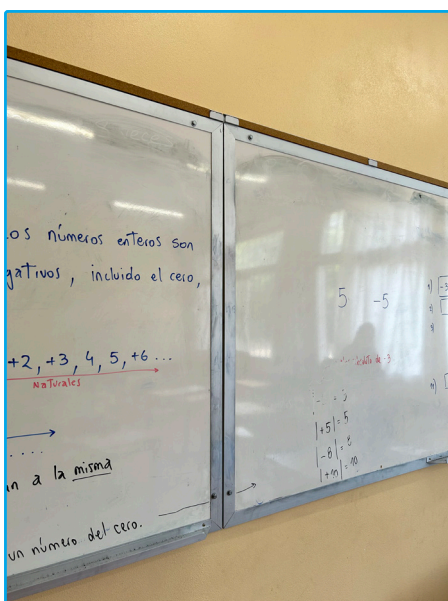 os números enteros son
gativos, incluido el cero,
+2, +3, 4, 5, +6 ...
Naturales
.....
n a la misma
un número del cero.
5 -5
de -3
|+5| = 5
|-8| = 8
|+10| = 10